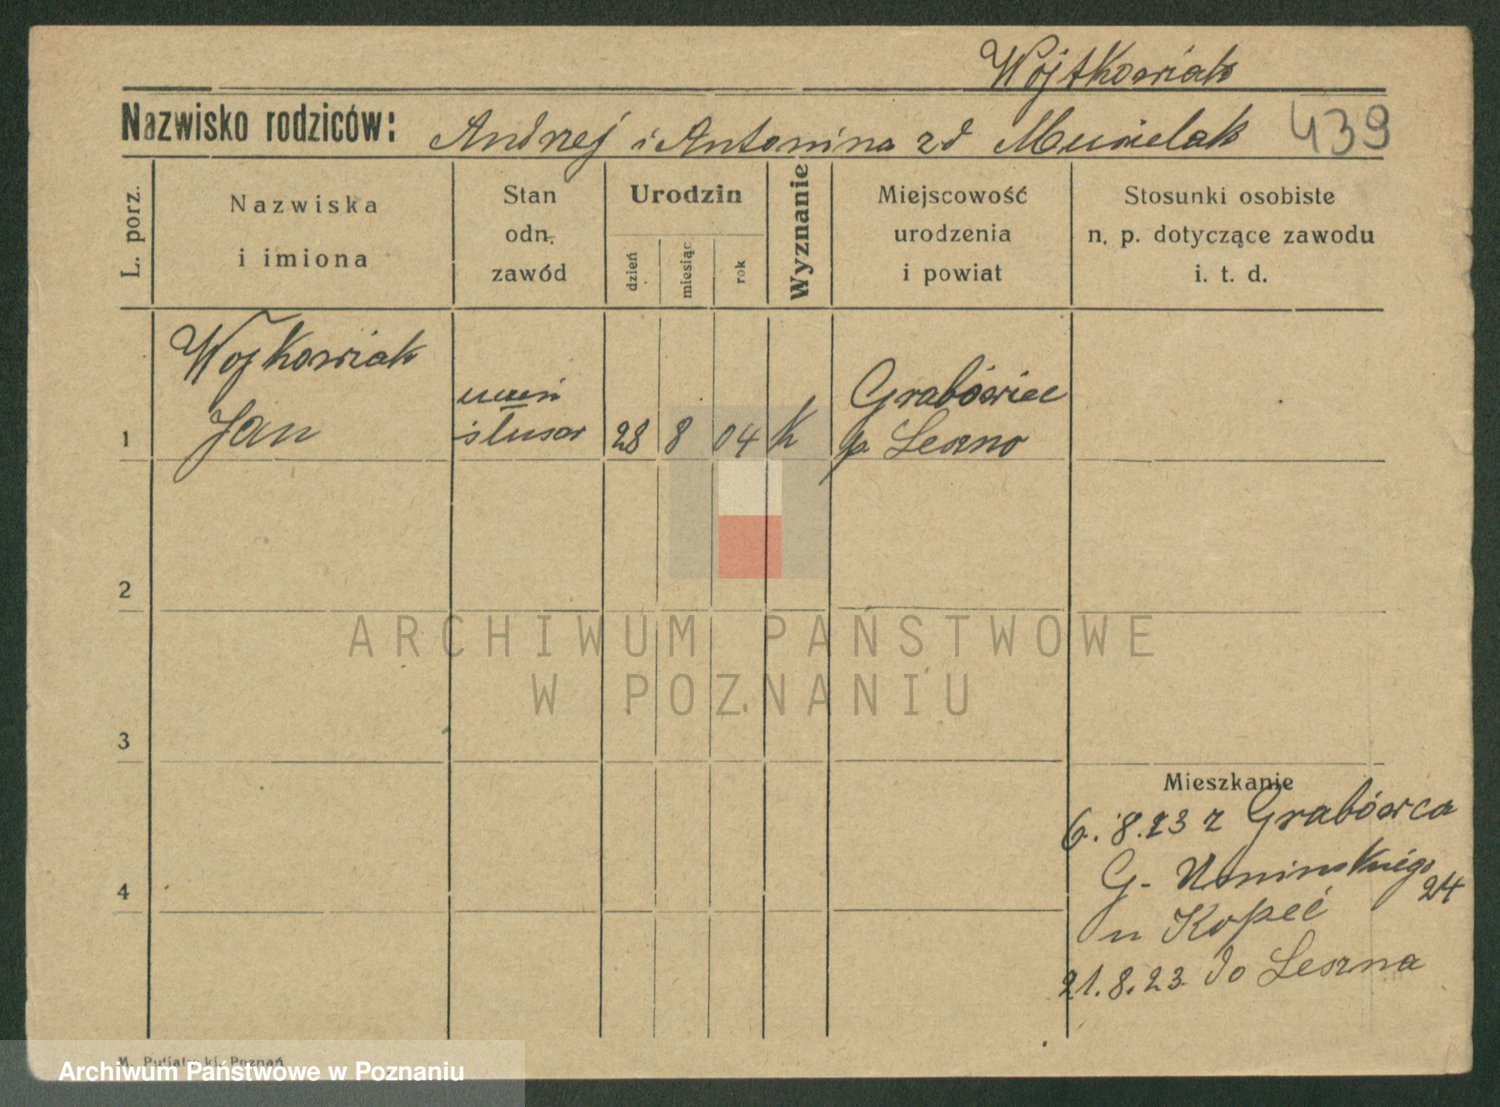 Wojtkowiak
Nazwisko rodziców: Andrzej i Antonina zd Musielak 439
L. porz.
Nazwiska
i imiona
Stan
odn.
zawód
Urodzin
dzień
miesiąc
rok
Wyznanie
Miejscowość
urodzenia
i powiat
Stosunki osobiste
n. p. dotyczące zawodu
i. t. d.
Wojkowiak
Jan
uczeń
ślusar
28 8 04 k
Grabówiec
p. Leszno
1
2
3
4
Mieszkanie
6.8.23 z Grabówca
G. Umińskiégo
24
u Kopeć
21.8.23 do Leszna
ARCHIWUM PAŃSTWOWE
W POZNANIU
Poznań
Archiwum Państwowe w Poznaniu